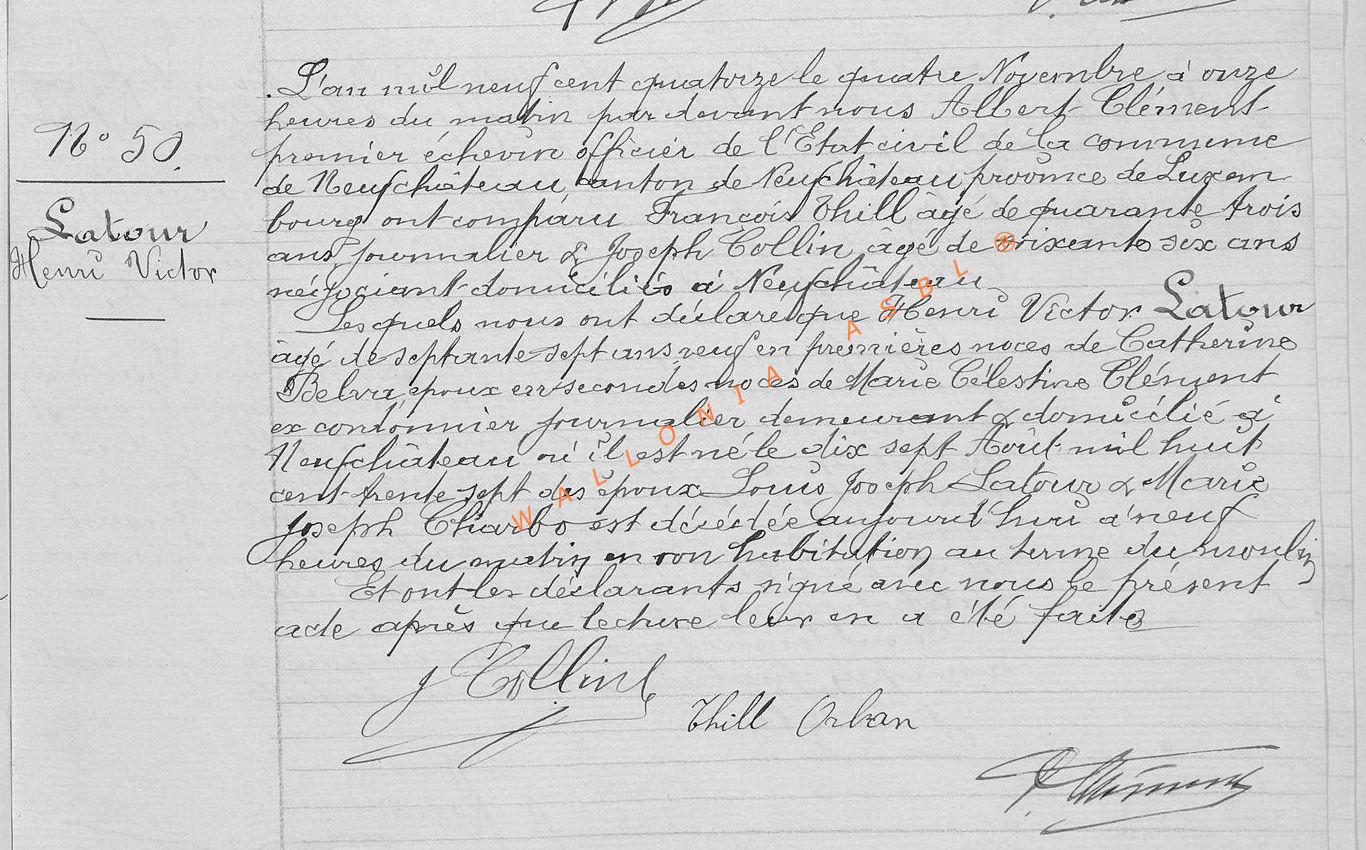 N° 50.
Latour
Henri Victor
L'an mil neuf cent quatorze le quatre Novembre à onze
heures du matin par devant nous Albert Clément
premier échevin officier de l'Etat civil de la commune
de Neufchâteau, canton de Neufchâteau province de Luxem
bourg ont comparu François Thill âgé de quarante trois
ans journalier & Joseph Collin âgé de soixante six ans
négociant domiciliés à Neufchâteau
Lesquels nous ont déclaré que Henri Victor Latour
âgé de septante sept ans veuf en premières noces de Catherine
Belva, époux en secondes noces de Marie Célestine Clément
ex cordonnier journalier demeurant & domicilié à
Neufchâteau où il est né le dix sept Août mil huit
cent trente sept des époux Louis Joseph Latour & Marie
Joseph Charbo est décédé aujourd'hui à neuf
heures du matin en son habitation au terme du moulin
Et ont les déclarants signé avec nous le présent
acte après que lecture leur en a été faite
J Collin
Thill Orban
Clément
WALLONIA ASBL ®